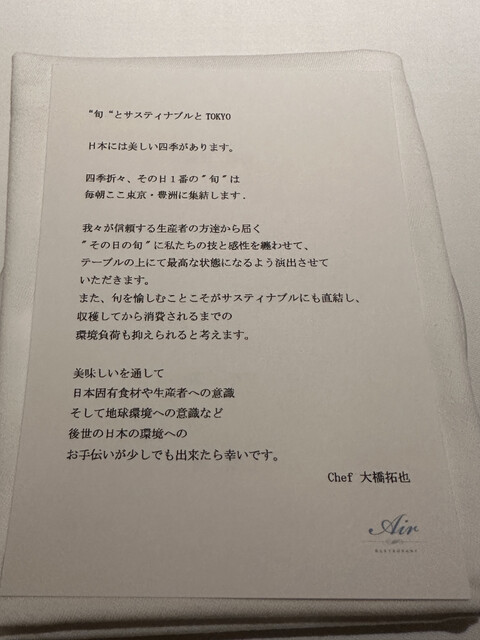 "旬"とサスティナブルとTOKYO
日本には美しい四季があります。
四季折々、その日1番の"旬"は
毎朝ここ東京・豊洲に集結します.
我々が信頼する生産者の方達から届く
"その日の旬"に私たちの技と感性を纏わせて、
テーブルの上にて最高な状態になるよう演出させて
いただきます。
また、旬を愉しむことこそがサスティナブルにも直結し、
収穫してから消費されるまでの
環境負荷も抑えられると考えます。
美味しいを通して
日本固有食材や生産者への意識
そして地球環境への意識など
後世の日本の環境への
お手伝いが少しでも出来たら幸いです。
Chef 大橋拓也
Air